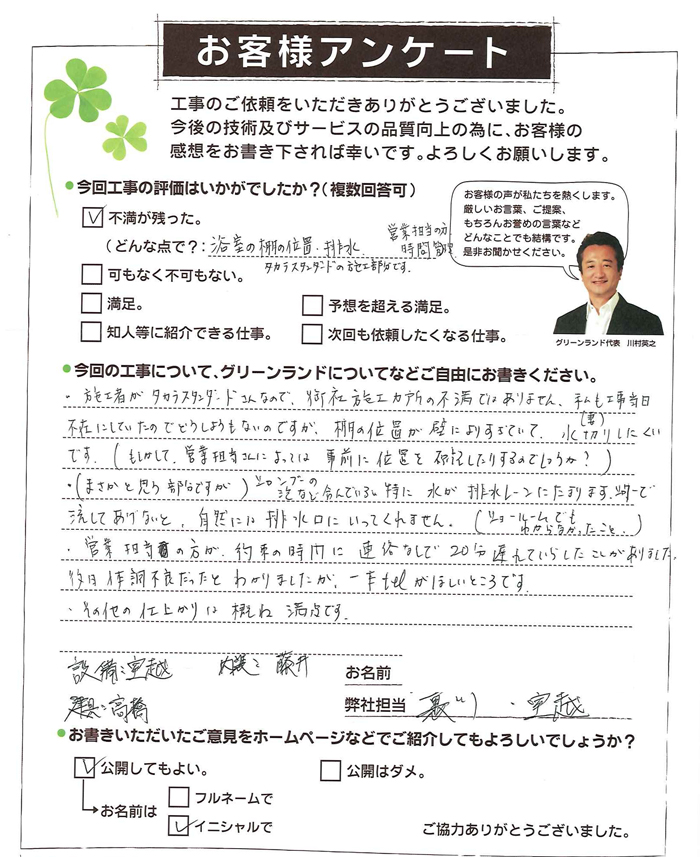 お客様アンケート
工事のご依頼をいただきありがとうございました。
今後の技術及びサービスの品質向上の為に、お客様の
感想をお書き下されば幸いです。よろしくお願いします。
●今回工事の評価はいかがでしたか?(複数回答可)
不満が残った。
(どんな点で?:浴室の棚の位置・排水 営業担当の方 時間管理
タカラスタンダードの施工部分です。
可もなく不可もない。
満足。
予想を超える満足。
知人等に紹介できる仕事。
次回も依頼したくなる仕事。
お客様の声が私たちを熱くします。
厳しいお言葉、ご提案、
もちろんお誉めの言葉など
どんなことでも結構です。
是非お聞かせください。
グリーンランド代表 川村英之
●今回の工事について、グリーンランドについてなどご自由にお書きください。
・施工者がタカラスタンダードさんなので、御社施工カ所の不満ではありません、私も工事当日
不在にしていたのでどうしようもないのですが、棚の位置が壁によりすぎていて、水切りしにくい
です。(もしかして、営業担当さんによっては事前に位置を確認したりするのでしょうか?)
・(まさかと思う部分ですが)シャンプーの泡など含んでいると特に水が排水レーンにたまります。
流してあげないと、自然には排水口にいってくれません。(ショールームでもわからなかったこと‥)
・営業担当の方が、約束の時間に連絡なしで20分遅れていらしたことがありました。
後日体調不良だったとわかりましたが、一本telがほしいところです。
・その他の仕上がりは概ね満点です。
設備:室越 藤井
お名前
高橋
弊社担当 ・室越
●お書きいただいたご意見をホームページなどでご紹介してもよろしいでしょうか?
公開してもよい。
公開はダメ。
お名前は
フルネームで
イニシャルで
ご協力ありがとうございました。